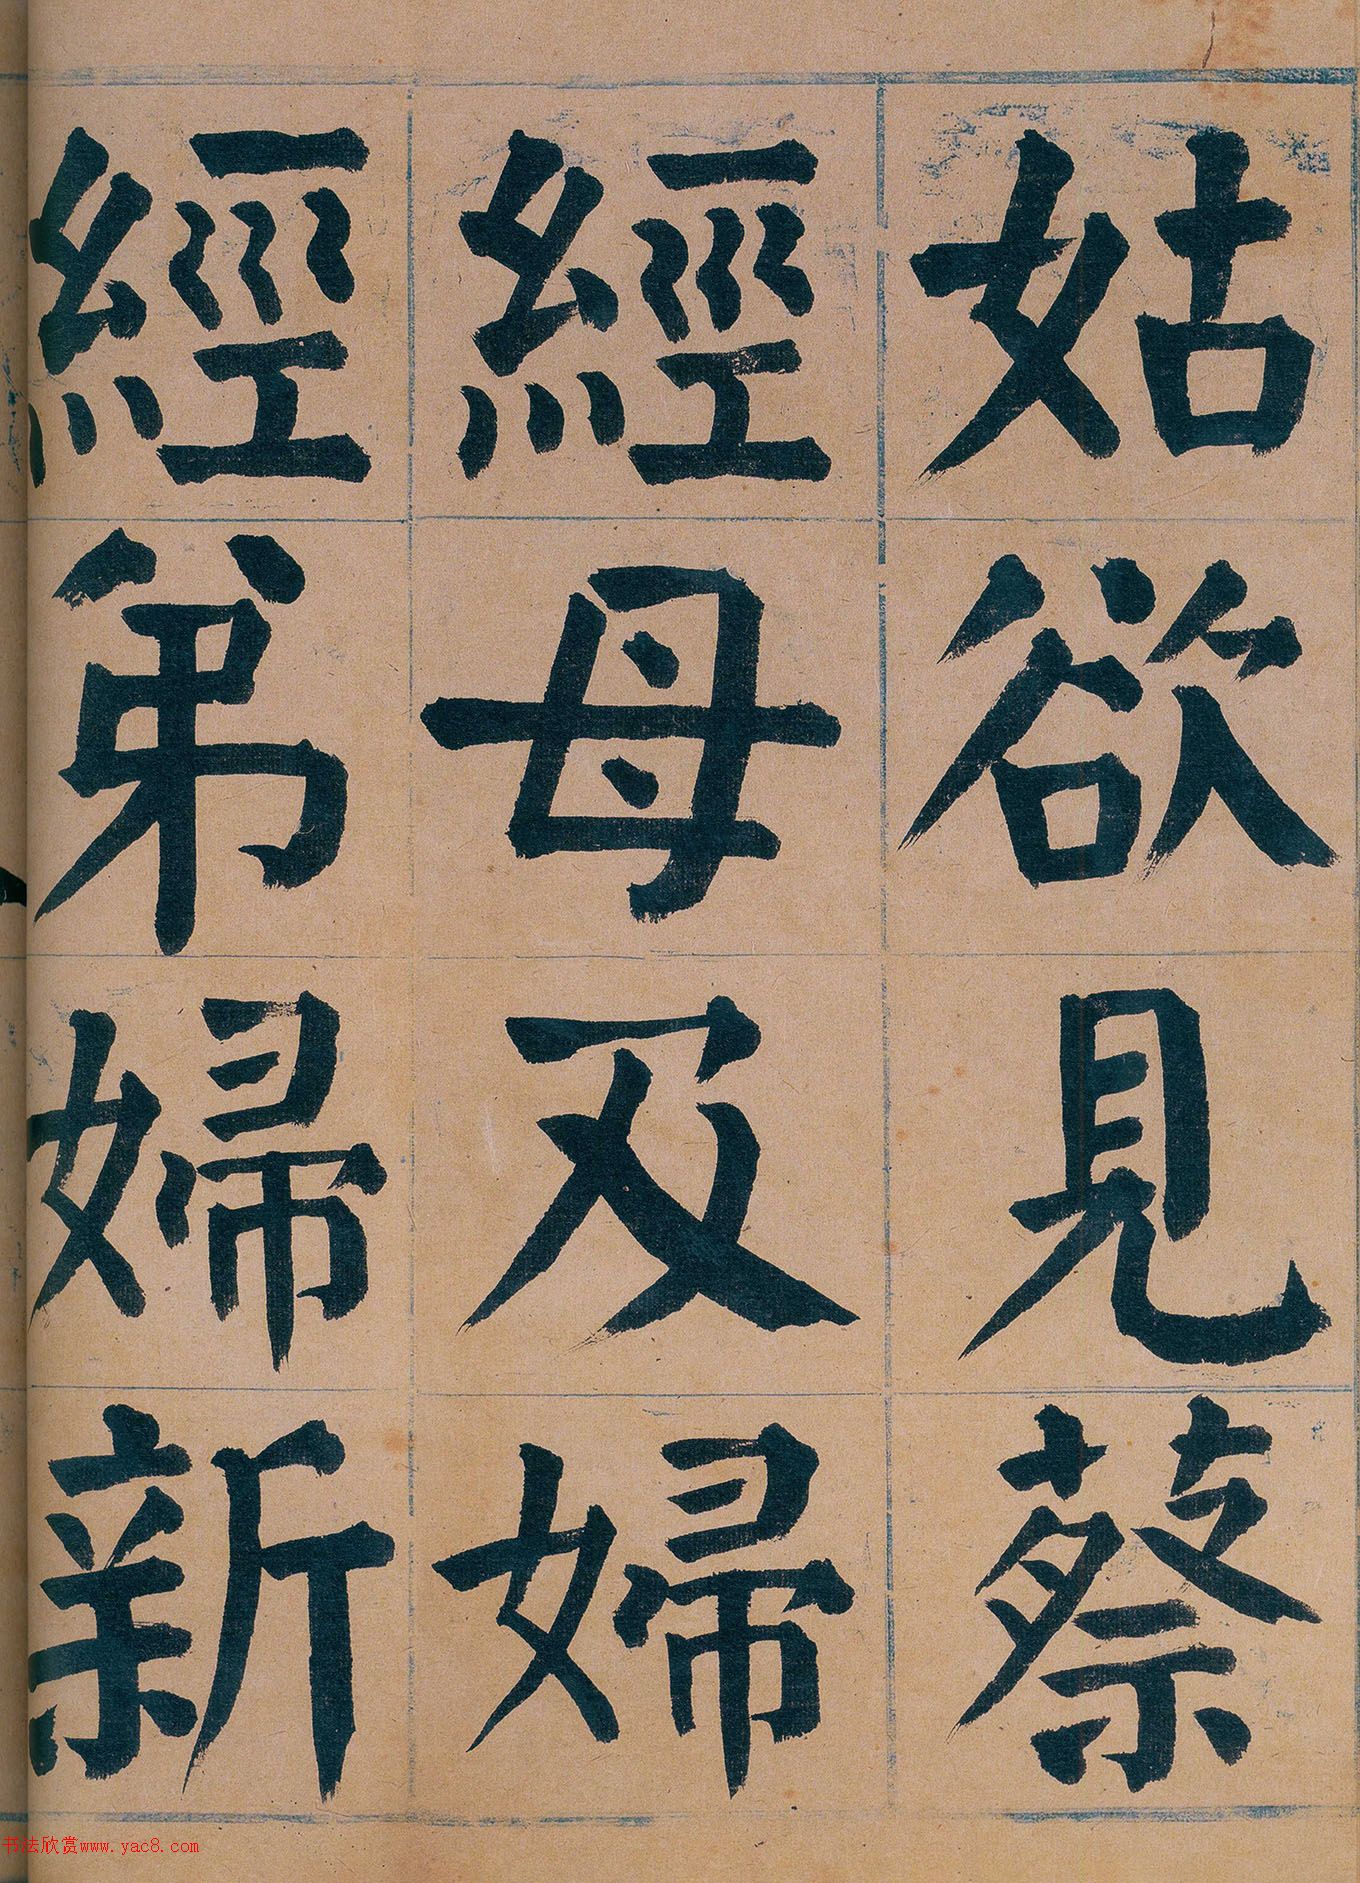 姑欲見蔡
經母及婦
經弟婦新
书法欣赏www.yac8.com